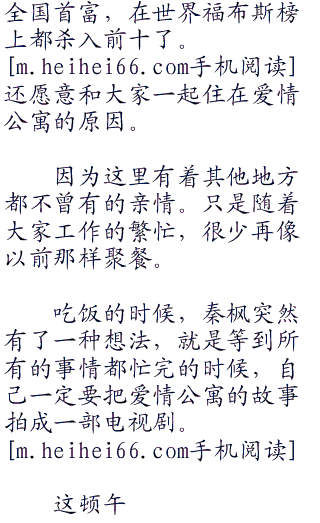 全国首富，在世界福布斯榜
上都杀入前十了。
[m.heihei66.com手机阅读]
还愿意和大家一起住在爱情
公寓的原因。
因为这里有着其他地方
都不曾有的亲情。只是随着
大家工作的繁忙，很少再像
以前那样聚餐。
吃饭的时候，秦枫突然
有了一种想法，就是等到所
有的事情都忙完的时候，自
己一定要把爱情公寓的故事
拍成一部电视剧。
[m.heihei66.com手机阅读]
这顿午